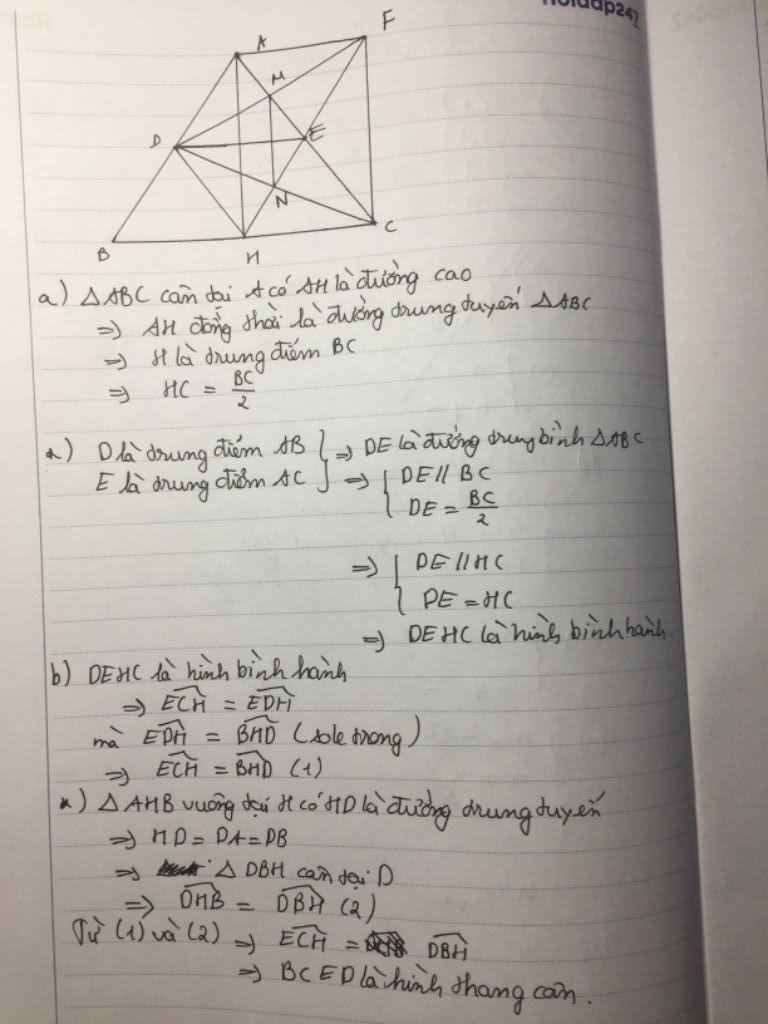 hoidap247
A
F
M
D
E
N
B
H
C
a) △ABC cân tại A có AH là đường cao
=> AH đồng thời là đường trung tuyến △ABC
=> H là trung điểm BC
=> HC = BC/2
*) D là trung điểm AB } => DE là đường trung bình △ABC
E là trung điểm AC } => { DE // BC
DE = BC/2
=> { DE // HC
DE = HC
=> DEHC là hình bình hành.
b) DEHC là hình bình hành
=> ECH = EDH
mà EDH = BHD (sole trong)
=> ECH = BHD (1)
*) △AHB vuông tại H có HD là đường trung tuyến
=> HD = DA = DB
=> △DBH cân tại D
=> DHB = DBH (2)
Từ (1) và (2) => ECH = DBH
=> BCED là hình thang cân.